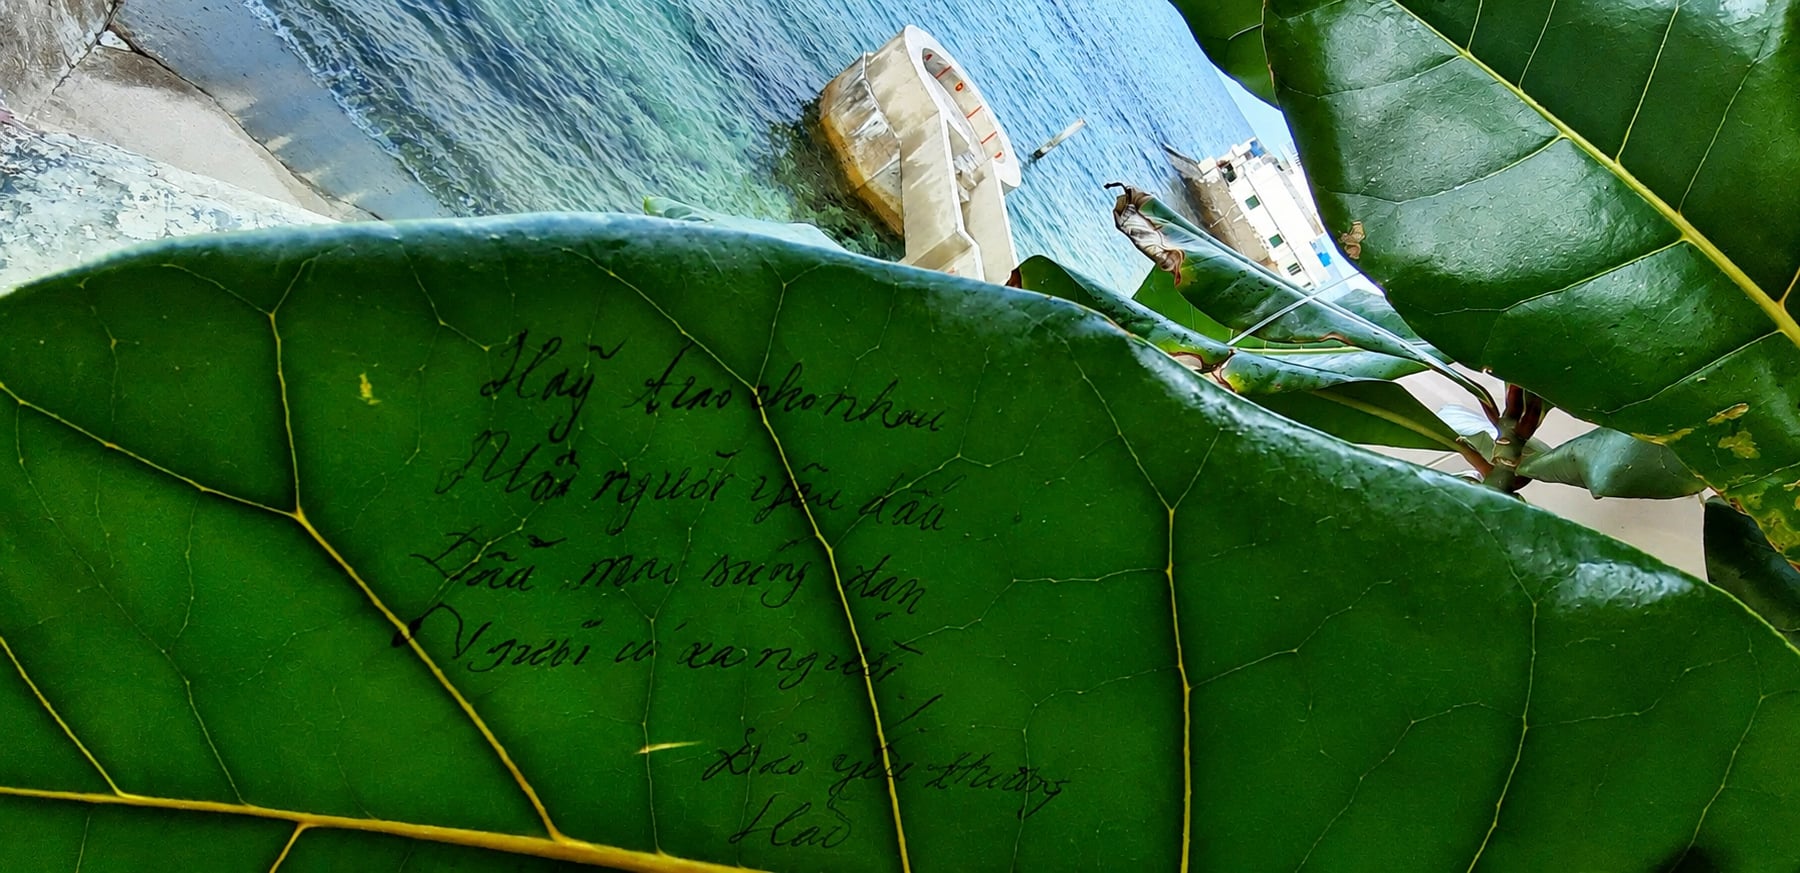 Hãy trao cho nhau
Mỗi người yêu dấu
Dẫu mai súng đạn
Người có xa người
Đảo yêu thương
Hao